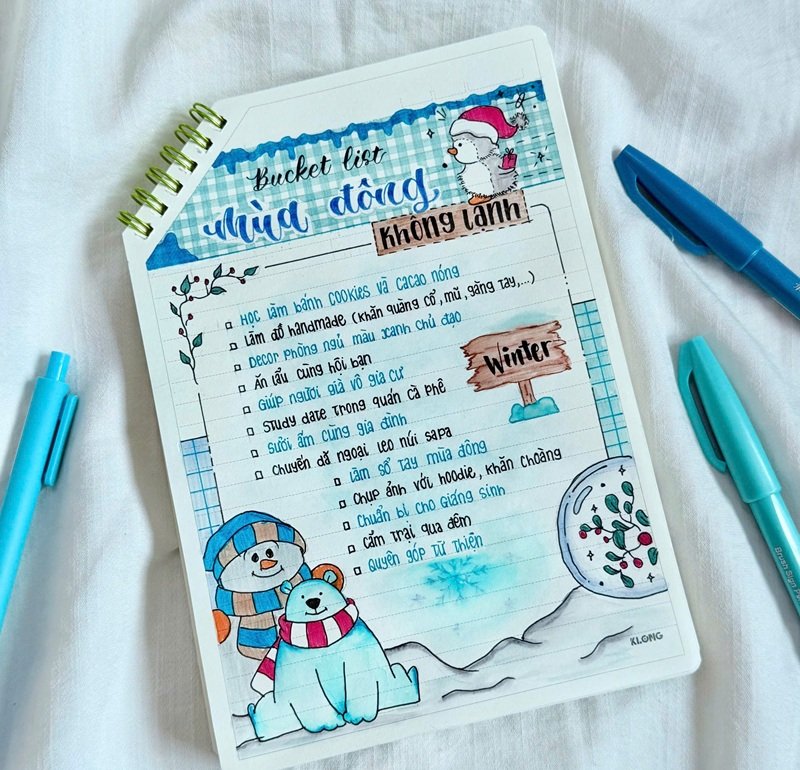 Bucket list
mùa đông
Không lạnh
Học làm bánh cookies và cacao nóng
Làm đồ handmade (khăn quàng cổ, mũ, găng tay,...)
Decor phòng ngủ màu xanh chủ đạo
Ăn lẩu cùng hội bạn
Giúp người già vô gia cư
Study date trong quán cà phê
Sưởi ấm cùng gia đình
Chuyến dã ngoại leo núi sapa
Làm sổ tay mùa đông
Chụp ảnh với hoodie, khăn choàng
Chuẩn bị cho Giáng sinh
Cắm trại qua đêm
Quyên góp từ thiện
Winter
KLONG
Brush Sign Pen